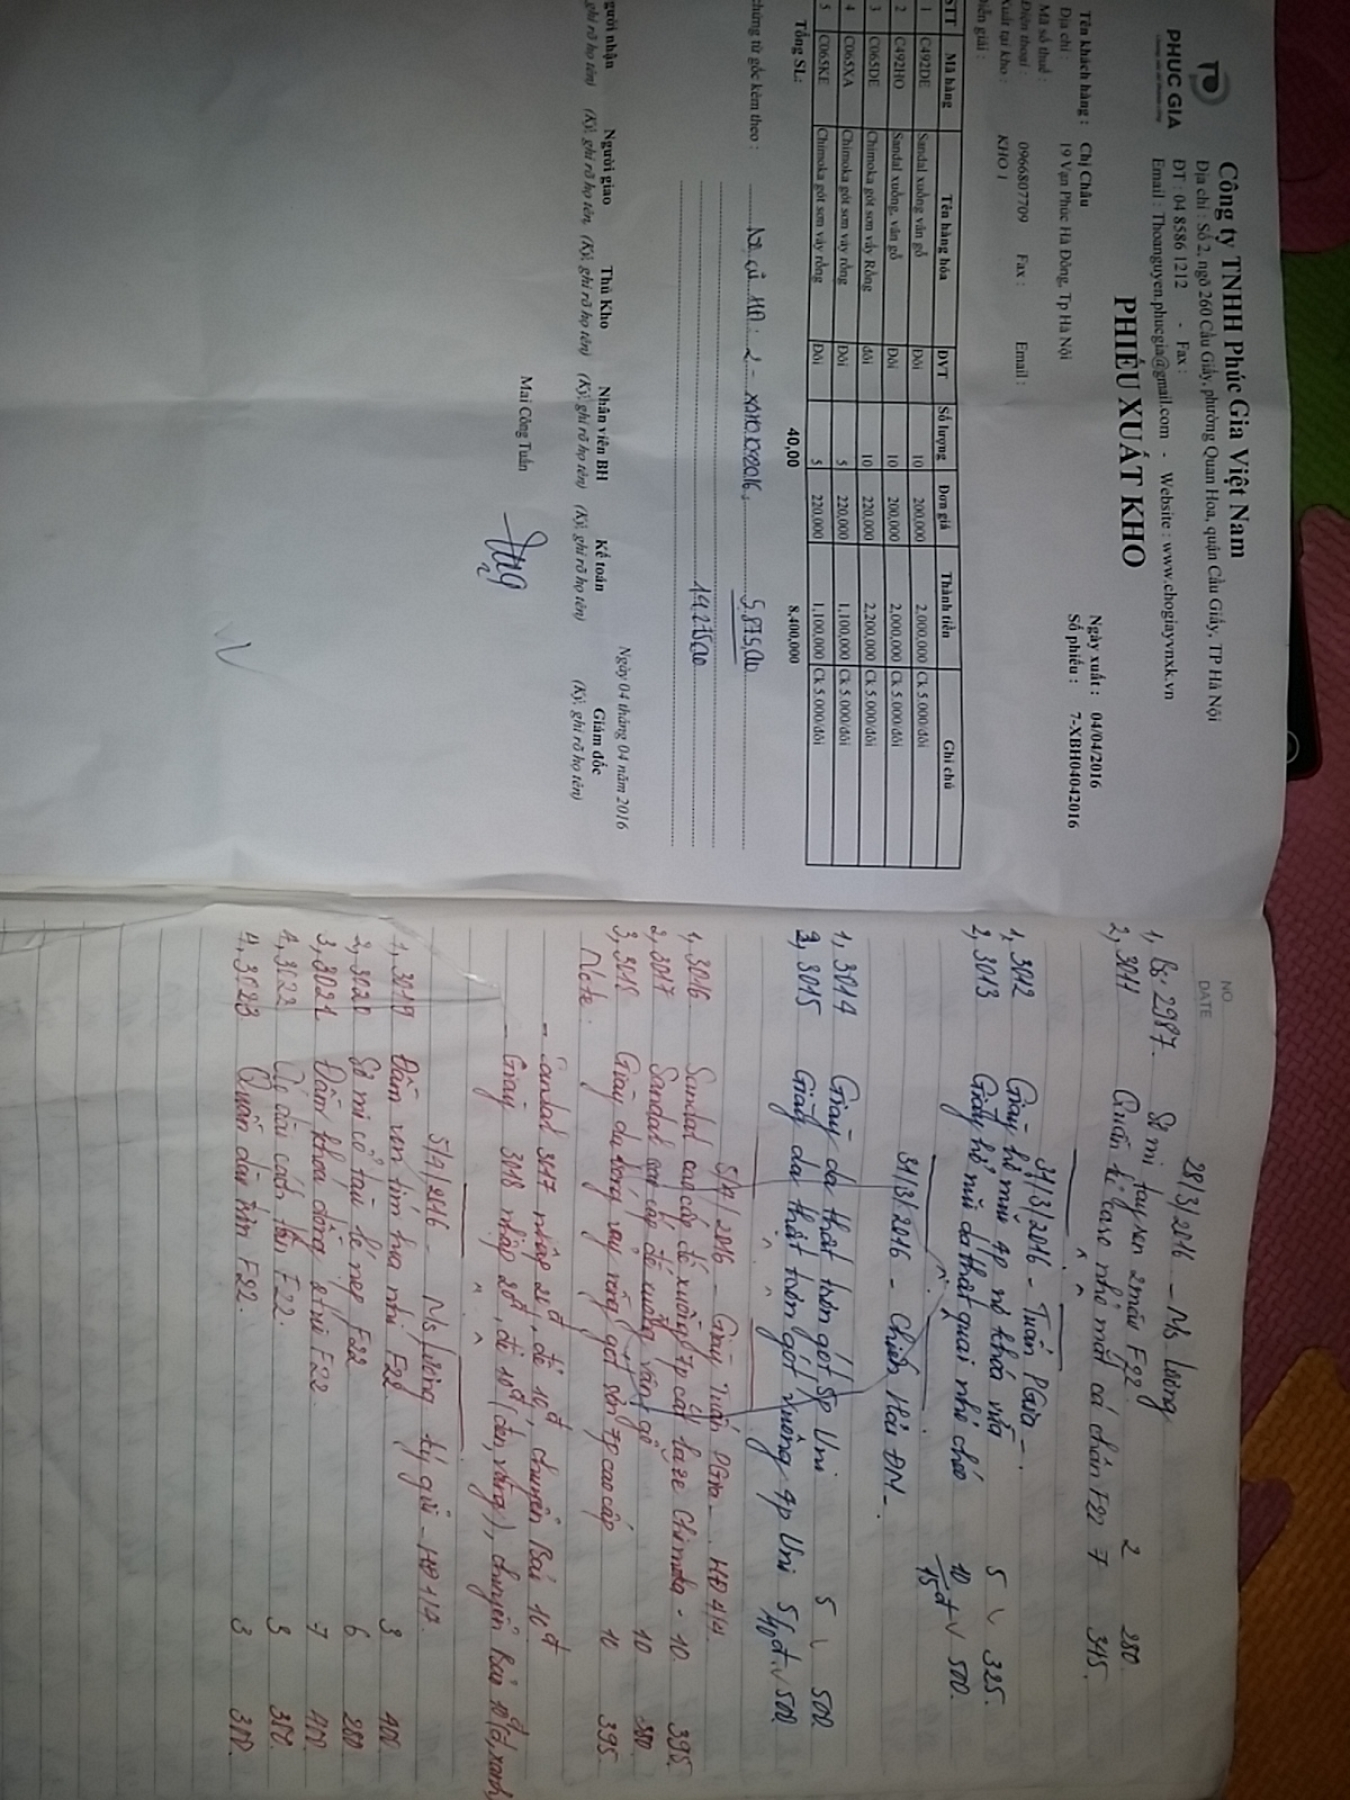 PHUC GIA
Công ty TNHH Phúc Gia Việt Nam
Địa chỉ : Số 2, ngõ 260 Cầu Giấy, phường Quan Hoa, quận Cầu Giấy, TP Hà Nội
ĐT : 04 8586 1212 - Fax :
Email : Thoanguyen.phucgia@gmail.com - Website : www.chogiayvnxk.vn
PHIẾU XUẤT KHO
Ngày xuất : 04/04/2016
Số phiếu : 7-XBH04042016
Tên khách hàng : Chị Châu
Địa chỉ : 19 Vạn Phúc Hà Đông, Tp Hà Nội
Mã số thuế :
Điện thoại : 0966807709 Fax : Email :
Xuất tại kho : KHO 1
iễn giải :
STT Mã hàng Tên hàng hóa ĐVT Số lượng Đơn giá Thành tiền Ghi chú
1 C492DE Sandal xuồng vân gỗ Đôi 10 200,000 2,000,000 Ck 5.000/đôi
2 C492HO Sandal xuồng, vân gỗ Đôi 10 200,000 2,000,000 Ck 5.000/đôi
3 C065DE Chimoka gót sơn vảy Rồng đôi 10 220,000 2,200,000 Ck 5.000/đôi
4 C065XA Chimoka gót sơn vảy rồng Đôi 5 220,000 1,100,000 Ck 5.000/đôi
5 C065KE Chimoka gót sơn vảy rồng Đôi 5 220,000 1,100,000 Ck 5.000/đôi
Tổng SL: 40,00 8,400,000
chứng từ gốc kèm theo : Nợ cũ HĐ : 2 - 5.875,00
14.275,00
Ngày 04 tháng 04 năm 2016
gười nhận Người giao Thủ Kho Nhân viên BH Kế toán Giám đốc
ghi rõ họ tên) (Ký, ghi rõ họ tên, (Ký, ghi rõ họ tên) (Ký, ghi rõ họ tên) (Ký, ghi rõ họ tên) (Ký, ghi rõ họ tên)
Mai Công Tuấn
NO
DATE
28/3/2016 - Ms Lường
1, 2987. Sơ mi tay ren 2 màu F22 2 280
2, 3011 Quần kẻ caro nhỏ mắt cá chân F22 7 345.
31/3/2016 - Tuấn PGia -
1, 3012 Giày hở mũi 4p nơ khoá vừa 5 325.
2, 3013 Giày hở mũi da thật quai nhỏ chéo 10 500.
15đ
31/3/2016 - Chiến Hải ĐN -
1, 3014 Giày da thật trơn gót 5p Uni 5 500
2, 3015 Giày da thật trơn gót vuông 4p Uni 5 500
10đ
5/4/2016 - Giày Tuấn PGia - HĐ 4/4
1, 3016 Sandal cao cấp đế xuồng 7p cắt laze Chimoka - 10 395.
2, 3017 Sandal cao cấp đế xuồng vân gỗ 10 380
3, 3018 Giày da bóng vảy rồng gót sơn 7p cao cấp 10 395
Note :
- Sandal 3017 nhập 20đ, để 10đ, chuyển Bai 10đ
- Giày 3018 nhập 20đ, để 10đ (đen, vàng), chuyển Bai 10đ (đ, xanh,
5/4/2016 - Ms Lường ký gửi - HĐ 1/4.
1, 3019 Đầm ren tím hoa nhí F22 3 400
2, 3020 Sơ mi cổ tàu kẻ nẹp F22 6 280
3, 3021 Đầm khoá đồng 2 túi F22 7 400
4, 3022 F22. 3 350
4, 3023 Quần dài trơn F22. 3 300